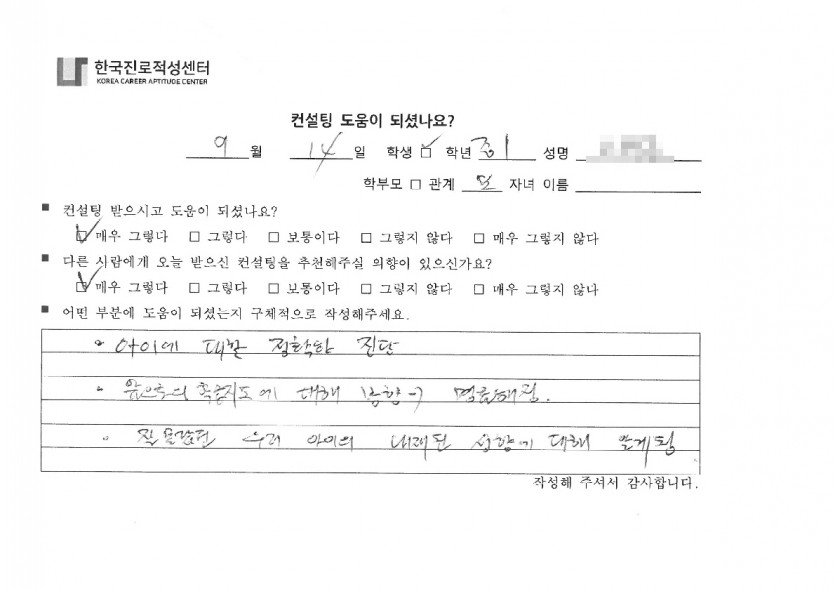 한국진로적성센터
KOREA CAREER APTITUDE CENTER
컨설팅 도움이 되셨나요?
9 월 14 일 학생 □ 학년 중1 성명
학부모 □ 관계 모 자녀 이름
■ 컨설팅 받으시고 도움이 되셨나요?
☑ 매우 그렇다 □ 그렇다 □ 보통이다 □ 그렇지 않다 □ 매우 그렇지 않다
■ 다른 사람에게 오늘 받으신 컨설팅을 추천해주실 의향이 있으신가요?
☑ 매우 그렇다 □ 그렇다 □ 보통이다 □ 그렇지 않다 □ 매우 그렇지 않다
■ 어떤 부분에 도움이 되셨는지 구체적으로 작성해주세요.
• 아이에 대한 정확한 진단
• 앞으로의 학습지도에 대해 방향이
• 잘 몰랐던 우리 아이의 내재된 성향에 대해 알게됨
작성해 주셔서 감사합니다.